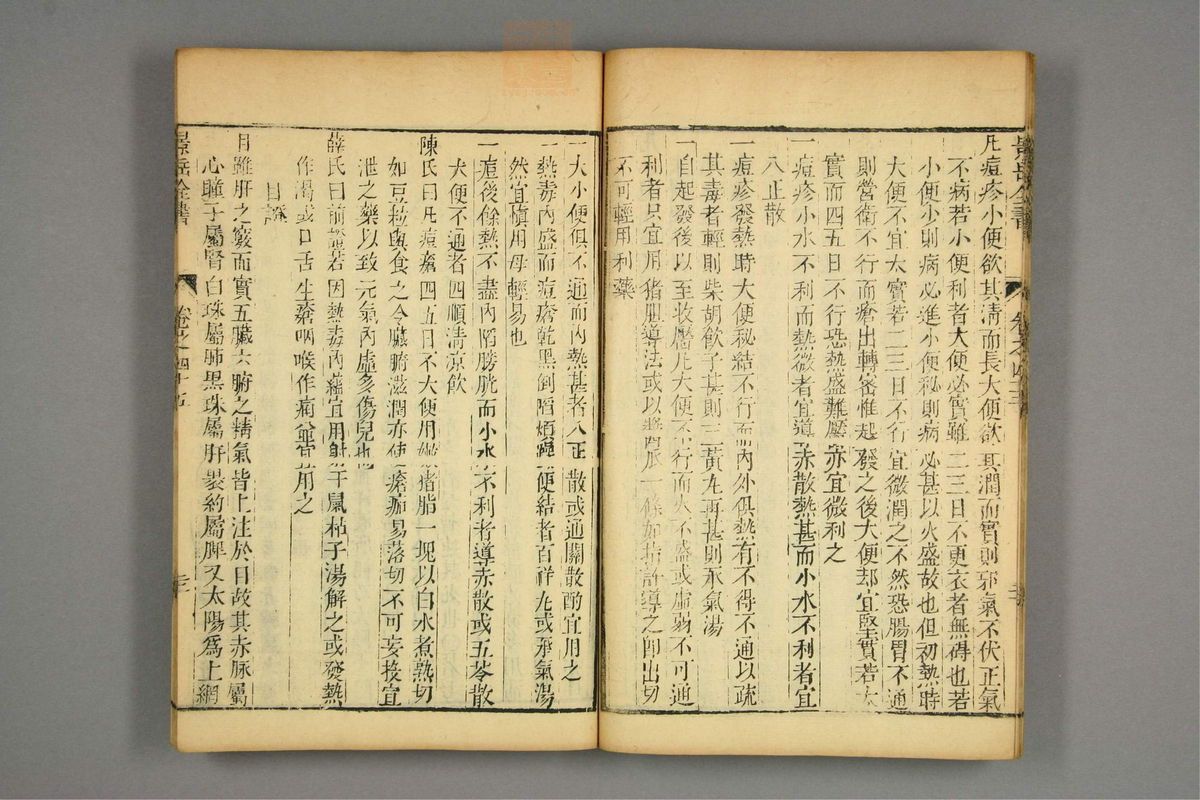 景岳全書 卷之四十五
凡痘疹小便欲其清而長大便欲其潤而實則邪氣不伏正氣
不病若小便利者大便必實雖二三日不更衣者無碍也若
小便少則病必進小便秘則病必甚以火盛故也但初熱時
大便不宜太實若二三日不行宜微潤之不然恐腸胃不通
則營衛不行而瘡出轉密惟起發之後大便却宜堅實若太
實而四五日不行恐熱盛難靨亦宜微利之
一痘疹小水不利而熱微者宜導赤散熱甚而小水不利者宜
八正散
一痘疹發熱時大便秘結不行而內外俱熱有不得不通以疏
其毒者輕則柴胡飲子甚則三黃丸再甚則承氣湯
一自起發後以至收靨凡大便不行而火不盛或虛弱不可通
利者只宜用猪胆導法或以醬瓜一條如指許導之即出切
不可輕用利藥
一大小便俱不通而內熱甚者八正散或通關散酌宜用之
一熱毒內盛而痘瘡乾黑倒陷煩躁便結者百祥丸或承氣湯
然宜慎用毋輕易也
一痘後餘熱不盡內陷膀胱而小水不利者導赤散或五苓散
大便不通者四順清凉飲
陳氏曰凡痘瘡四五日不大便用嫩猪脂一塊以白水煮熟切
如豆粒與食之令臟腑滋潤亦使瘡痂易落切不可妄投宣
泄之藥以致元氣內虛多傷兒也
薛氏曰前證若因熱毒內蘊宜用射干鼠粘子湯解之或發熱
作渴或口舌生瘡咽喉作痛並宜用之
目證
目雖肝之竅而實五臟六腑之精氣皆上注於目故其赤脉屬
心瞳子屬腎白珠屬肺黑珠屬肝裹約屬脾又太陽爲上網
景岳全書 卷之四十五